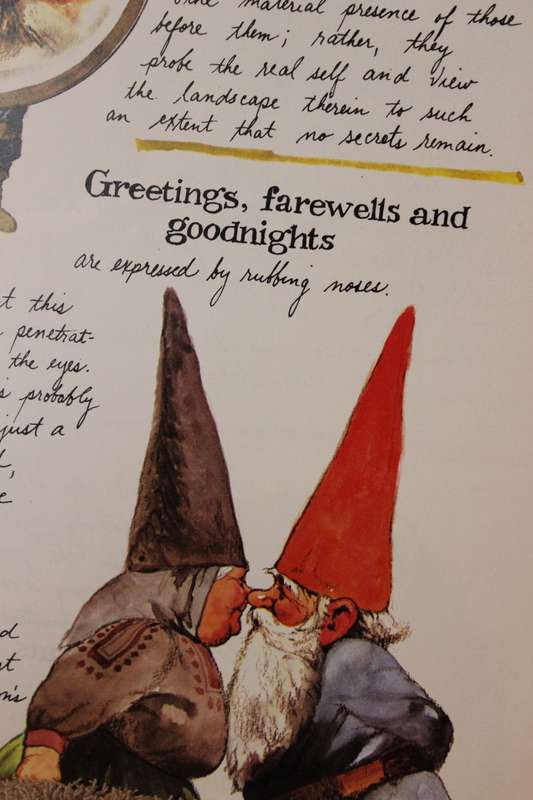 material presence of those
before them; rather, they
probe the real self and view
the landscape therein to such
an extent that no secrets remain.
Greetings, farewells and
goodnights
are expressed by rubbing noses.
t this
penetrat-
the eyes.
s probably
just a